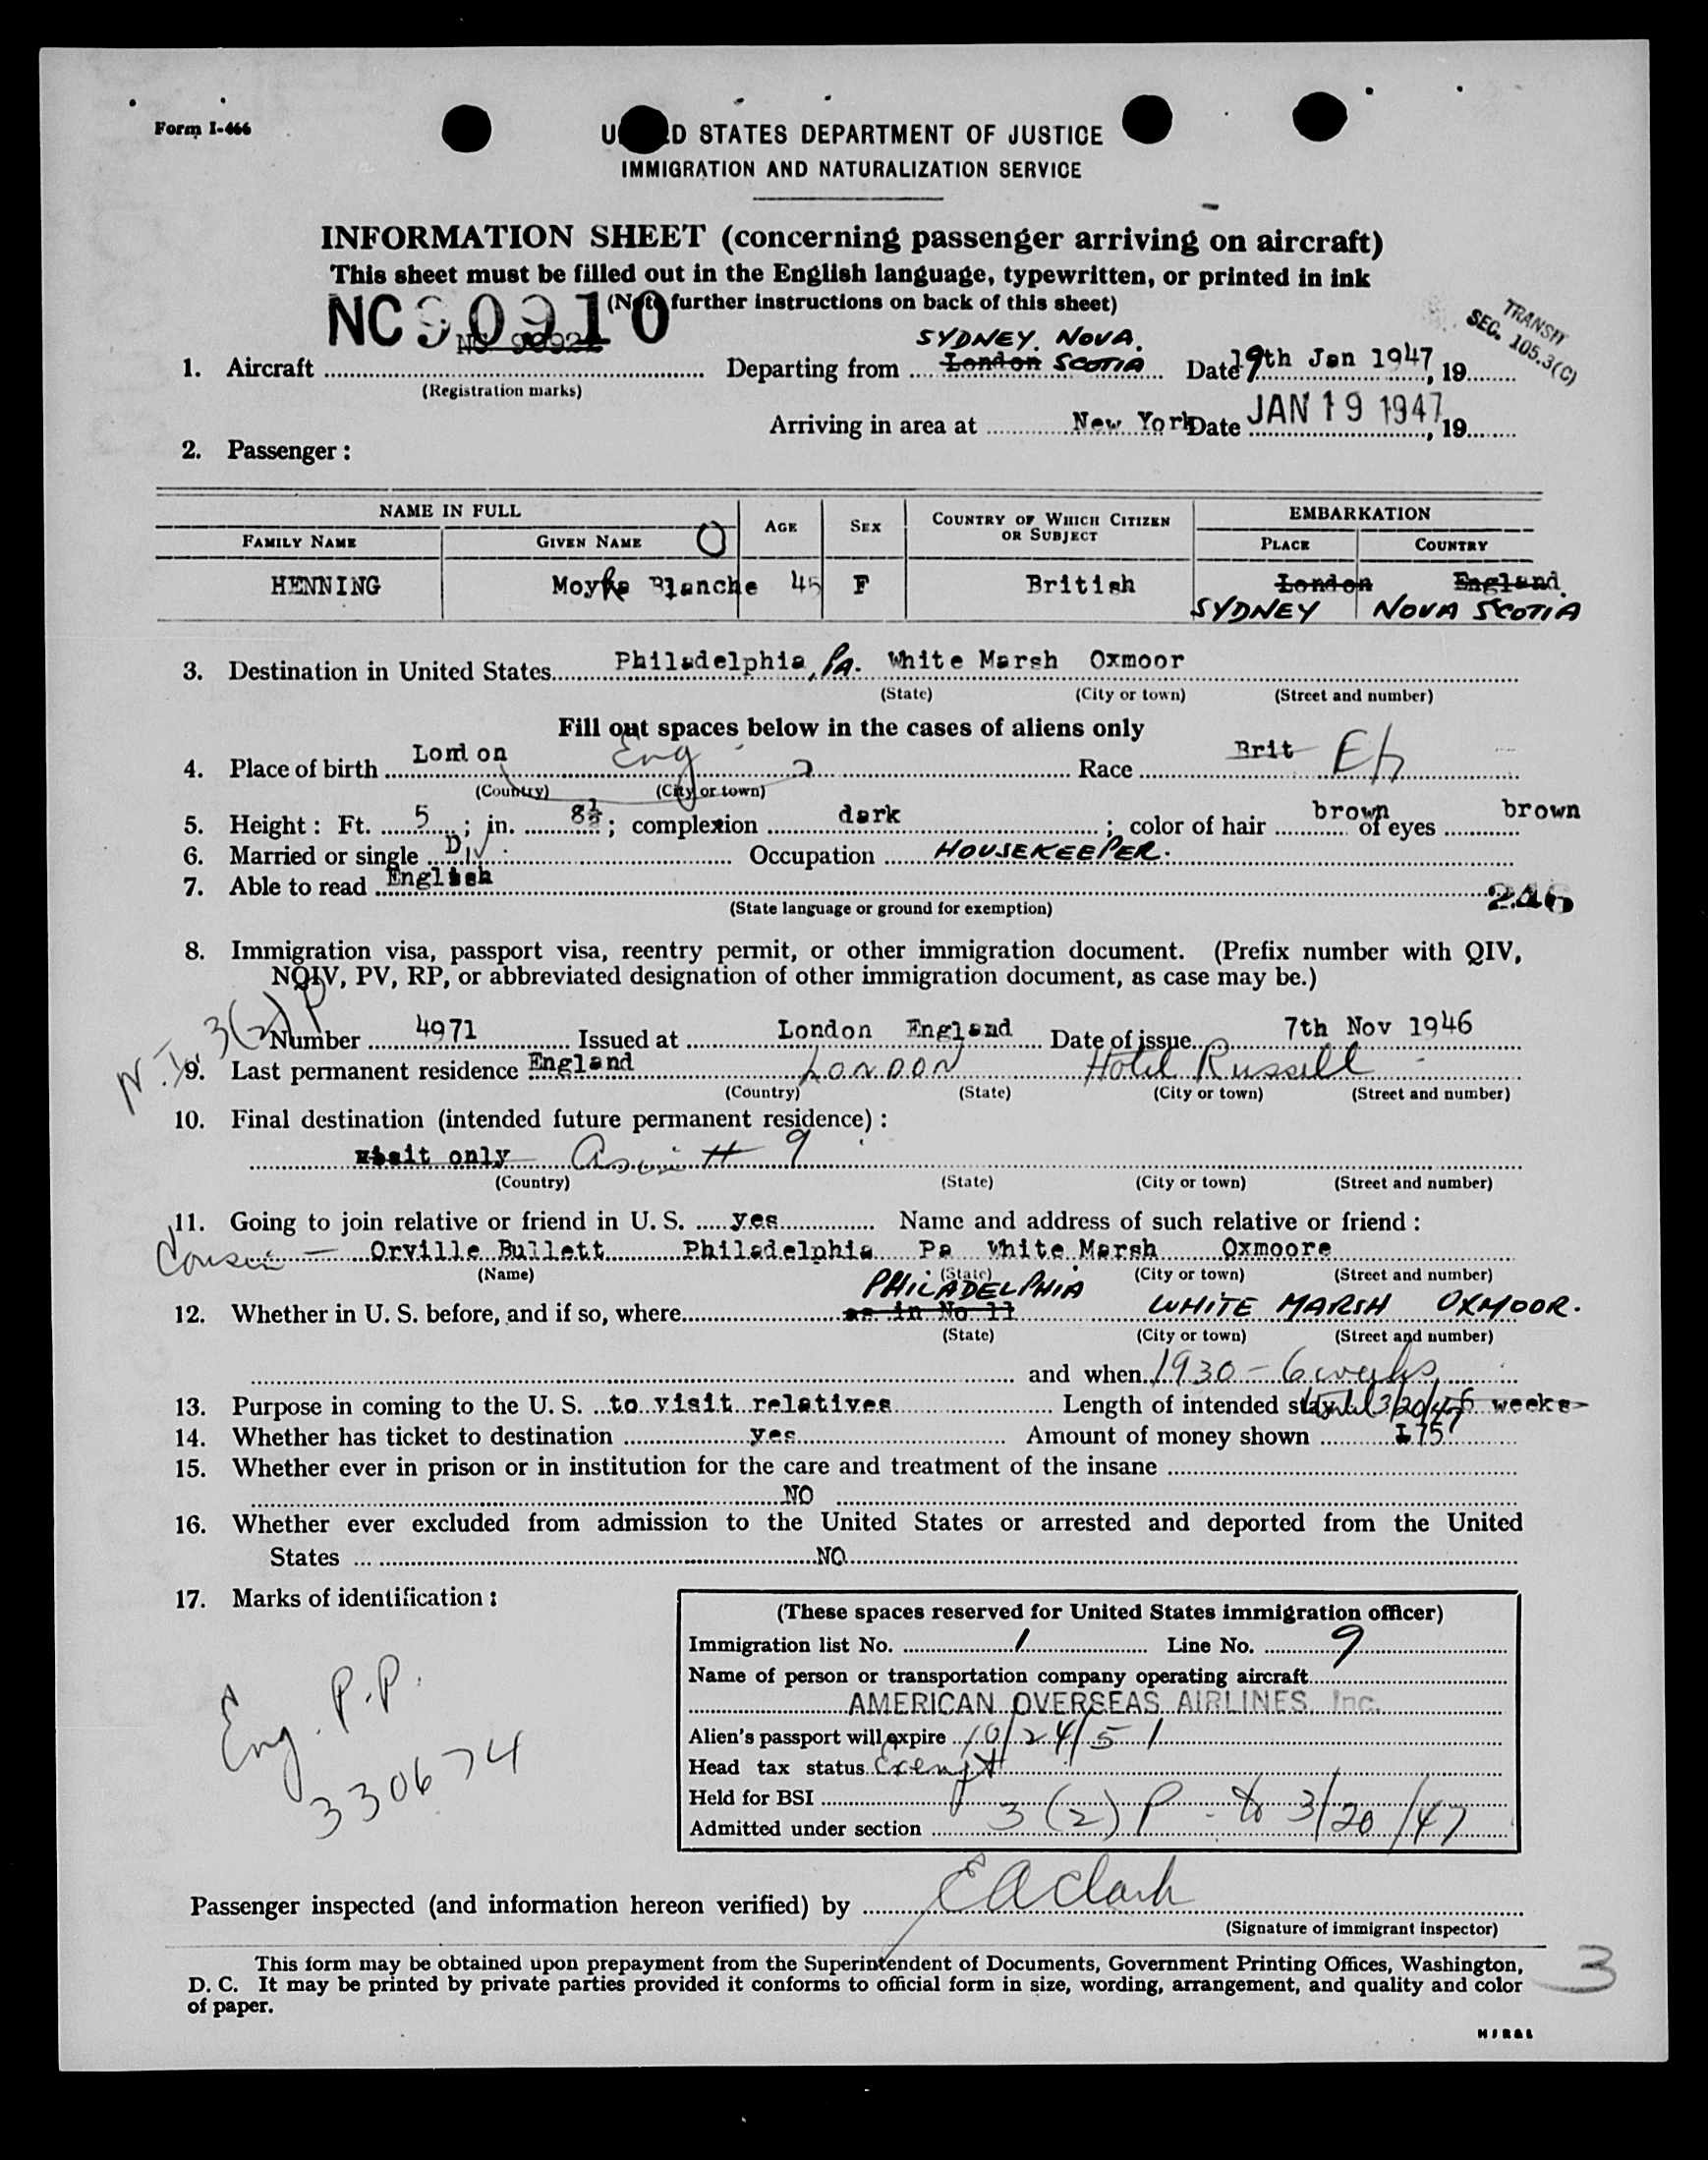 Form I-466
U D STATES DEPARTMENT OF JUSTICE
IMMIGRATION AND NATURALIZATION SERVICE
INFORMATION SHEET (concerning passenger arriving on aircraft)
This sheet must be filled out in the English language, typewritten, or printed in ink
(Note further instructions on back of this sheet)
NC 90910
TRANSIT
SEC. 105.3(C)
SYDNEY. NOVA.
1. Aircraft Departing from London SCOTIA Date 19th Jan 1947, 19
(Registration marks)
Arriving in area at New York Date JAN 19 1947, 19
2. Passenger:
NAME IN FULL AGE SEX COUNTRY OF WHICH CITIZEN OR SUBJECT EMBARKATION
FAMILY NAME GIVEN NAME PLACE COUNTRY
HENNING Blanche 45 F British London England.
SYDNEY NOVA SCOTIA
3. Destination in United States Philadelphia, PA. White Marsh Oxmoor
(State) (City or town) (Street and number)
Fill out spaces below in the cases of aliens only
4. Place of birth London Eng Race Brit
(Country) (City or town)
5. Height: Ft. 5; in. 8½; complexion dark; color of hair brown of eyes brown
6. Married or single Div. Occupation HOUSEKEEPER.
7. Able to read English
(State language or ground for exemption)
246
8. Immigration visa, passport visa, reentry permit, or other immigration document. (Prefix number with QIV,
NQIV, PV, RP, or abbreviated designation of other immigration document, as case may be.)
3(2)P
Number 4971 Issued at London England Date of issue 7th Nov 1946
9. Last permanent residence England LONDON Hotel Russell
(Country) (State) (City or town) (Street and number)
10. Final destination (intended future permanent residence):
visit only as in # 9
(Country) (State) (City or town) (Street and number)
11. Going to join relative or friend in U. S. yes Name and address of such relative or friend:
Cousin - Orville Bullett Philadelphia Pa White Marsh Oxmoore
(Name) (State) (City or town) (Street and number)
PHILADELPHIA
12. Whether in U. S. before, and if so, where as in No 11 WHITE MARSH OXMOOR.
(State) (City or town) (Street and number)
and when 1930 - 6 weeks
13. Purpose in coming to the U. S. to visit relatives Length of intended stay until 3/20/47 6 weeks
14. Whether has ticket to destination yes Amount of money shown 75
15. Whether ever in prison or in institution for the care and treatment of the insane
NO
16. Whether ever excluded from admission to the United States or arrested and deported from the United
States NO
17. Marks of identification:
Eng. P.P.
330674
(These spaces reserved for United States immigration officer)
Immigration list No. 1 Line No. 9
Name of person or transportation company operating aircraft
AMERICAN OVERSEAS AIRLINES, Inc.
Alien's passport will expire 10/24/51
Head tax status Exempt
Held for BSI
Admitted under section 3(2)P - to 3/20/47
Passenger inspected (and information hereon verified) by E A Clark
(Signature of immigrant inspector)
This form may be obtained upon prepayment from the Superintendent of Documents, Government Printing Offices, Washington,
D. C. It may be printed by private parties provided it conforms to official form in size, wording, arrangement, and quality and color
of paper.
3